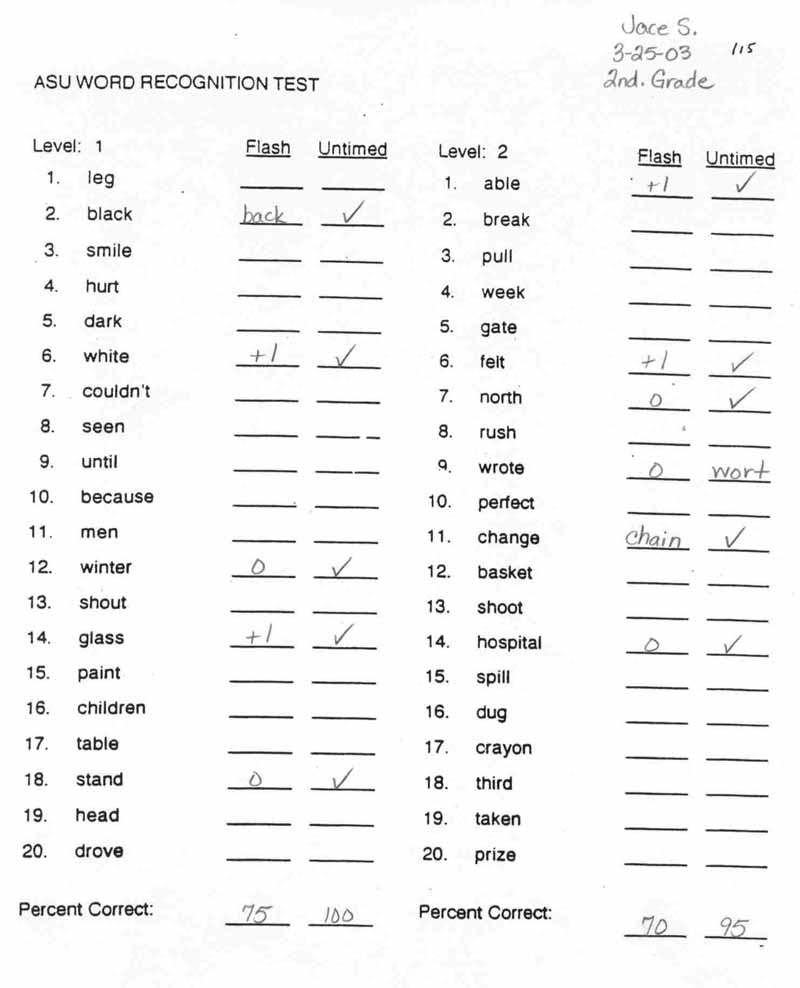 Jace S.
3-25-03 115
ASU WORD RECOGNITION TEST 2nd. Grade
Level: 1 Flash Untimed Level: 2 Flash Untimed
1. leg 1. able +1 ✓
2. black back ✓ 2. break
3. smile 3. pull
4. hurt 4. week
5. dark 5. gate
6. white +1 ✓ 6. felt +1 ✓
7. couldn't 7. north 0 ✓
8. seen 8. rush
9. until 9. wrote 0 wort
10. because 10. perfect
11. men 11. change chain ✓
12. winter 0 ✓ 12. basket
13. shout 13. shoot
14. glass +1 ✓ 14. hospital 0 ✓
15. paint 15. spill
16. children 16. dug
17. table 17. crayon
18. stand 0 ✓ 18. third
19. head 19. taken
20. drove 20. prize
Percent Correct: 75 100 Percent Correct: 70 95